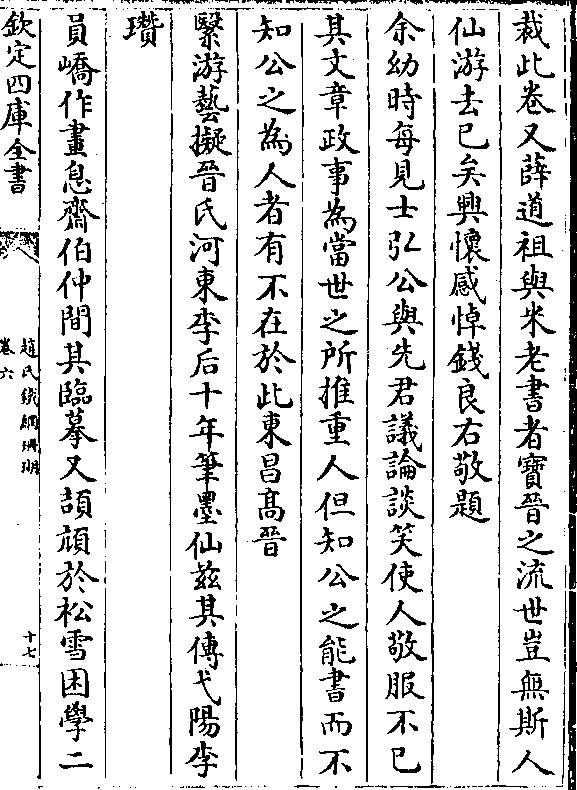 裁此卷又薛道祖與米老書者寶晉之流世豈無斯人
仙游去已矣興懷感悼錢良右敬題
余幼時每見士弘公與先君議論談笑使人敬服不已
其文章政事為當世之所推重人但知公之能書而不
知公之為人者有不在於此東昌髙晉
緊游藝擬晉氏河東李后十年筆墨仙兹其傳弋陽李
瓚
員嶠作畫息齋伯仲間其臨摹又頡頏於松雪困學二
欽定四庫全書
趙氏鐵網珊瑚
卷六
十七